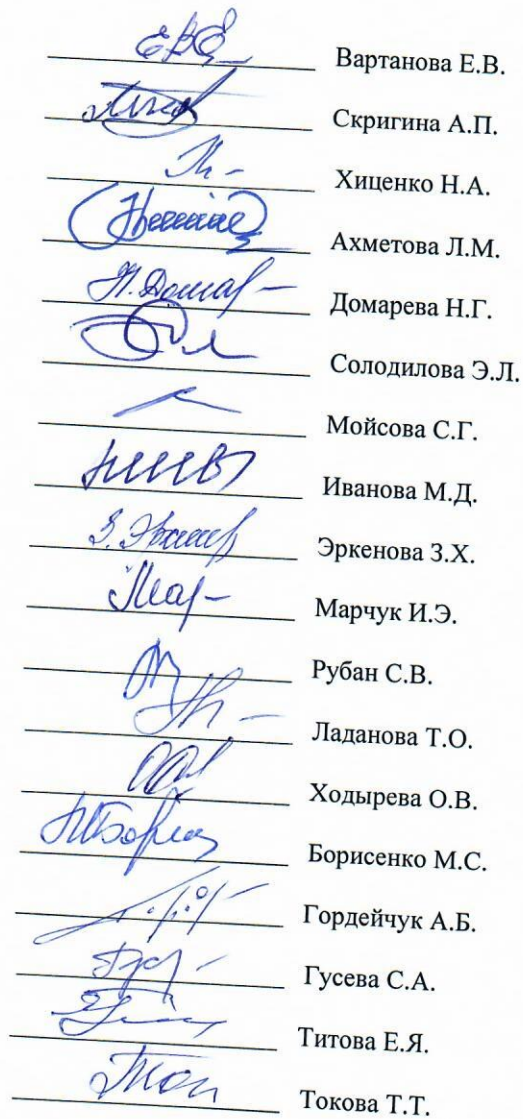 Вартанова Е.В.
Скригина А.П.
Хиценко Н.А.
Ахметова Л.М.
Н. Домар Домарева Н.Г.
Солодилова Э.Л.
Мойсова С.Г.
Иванова М.Д.
Эркенова З.Х.
Марчук И.Э.
Рубан С.В.
Ладанова Т.О.
Ходырева О.В.
Борисенко М.С.
Гордейчук А.Б.
Гусева С.А.
Титова Е.Я.
Токова Т.Т.